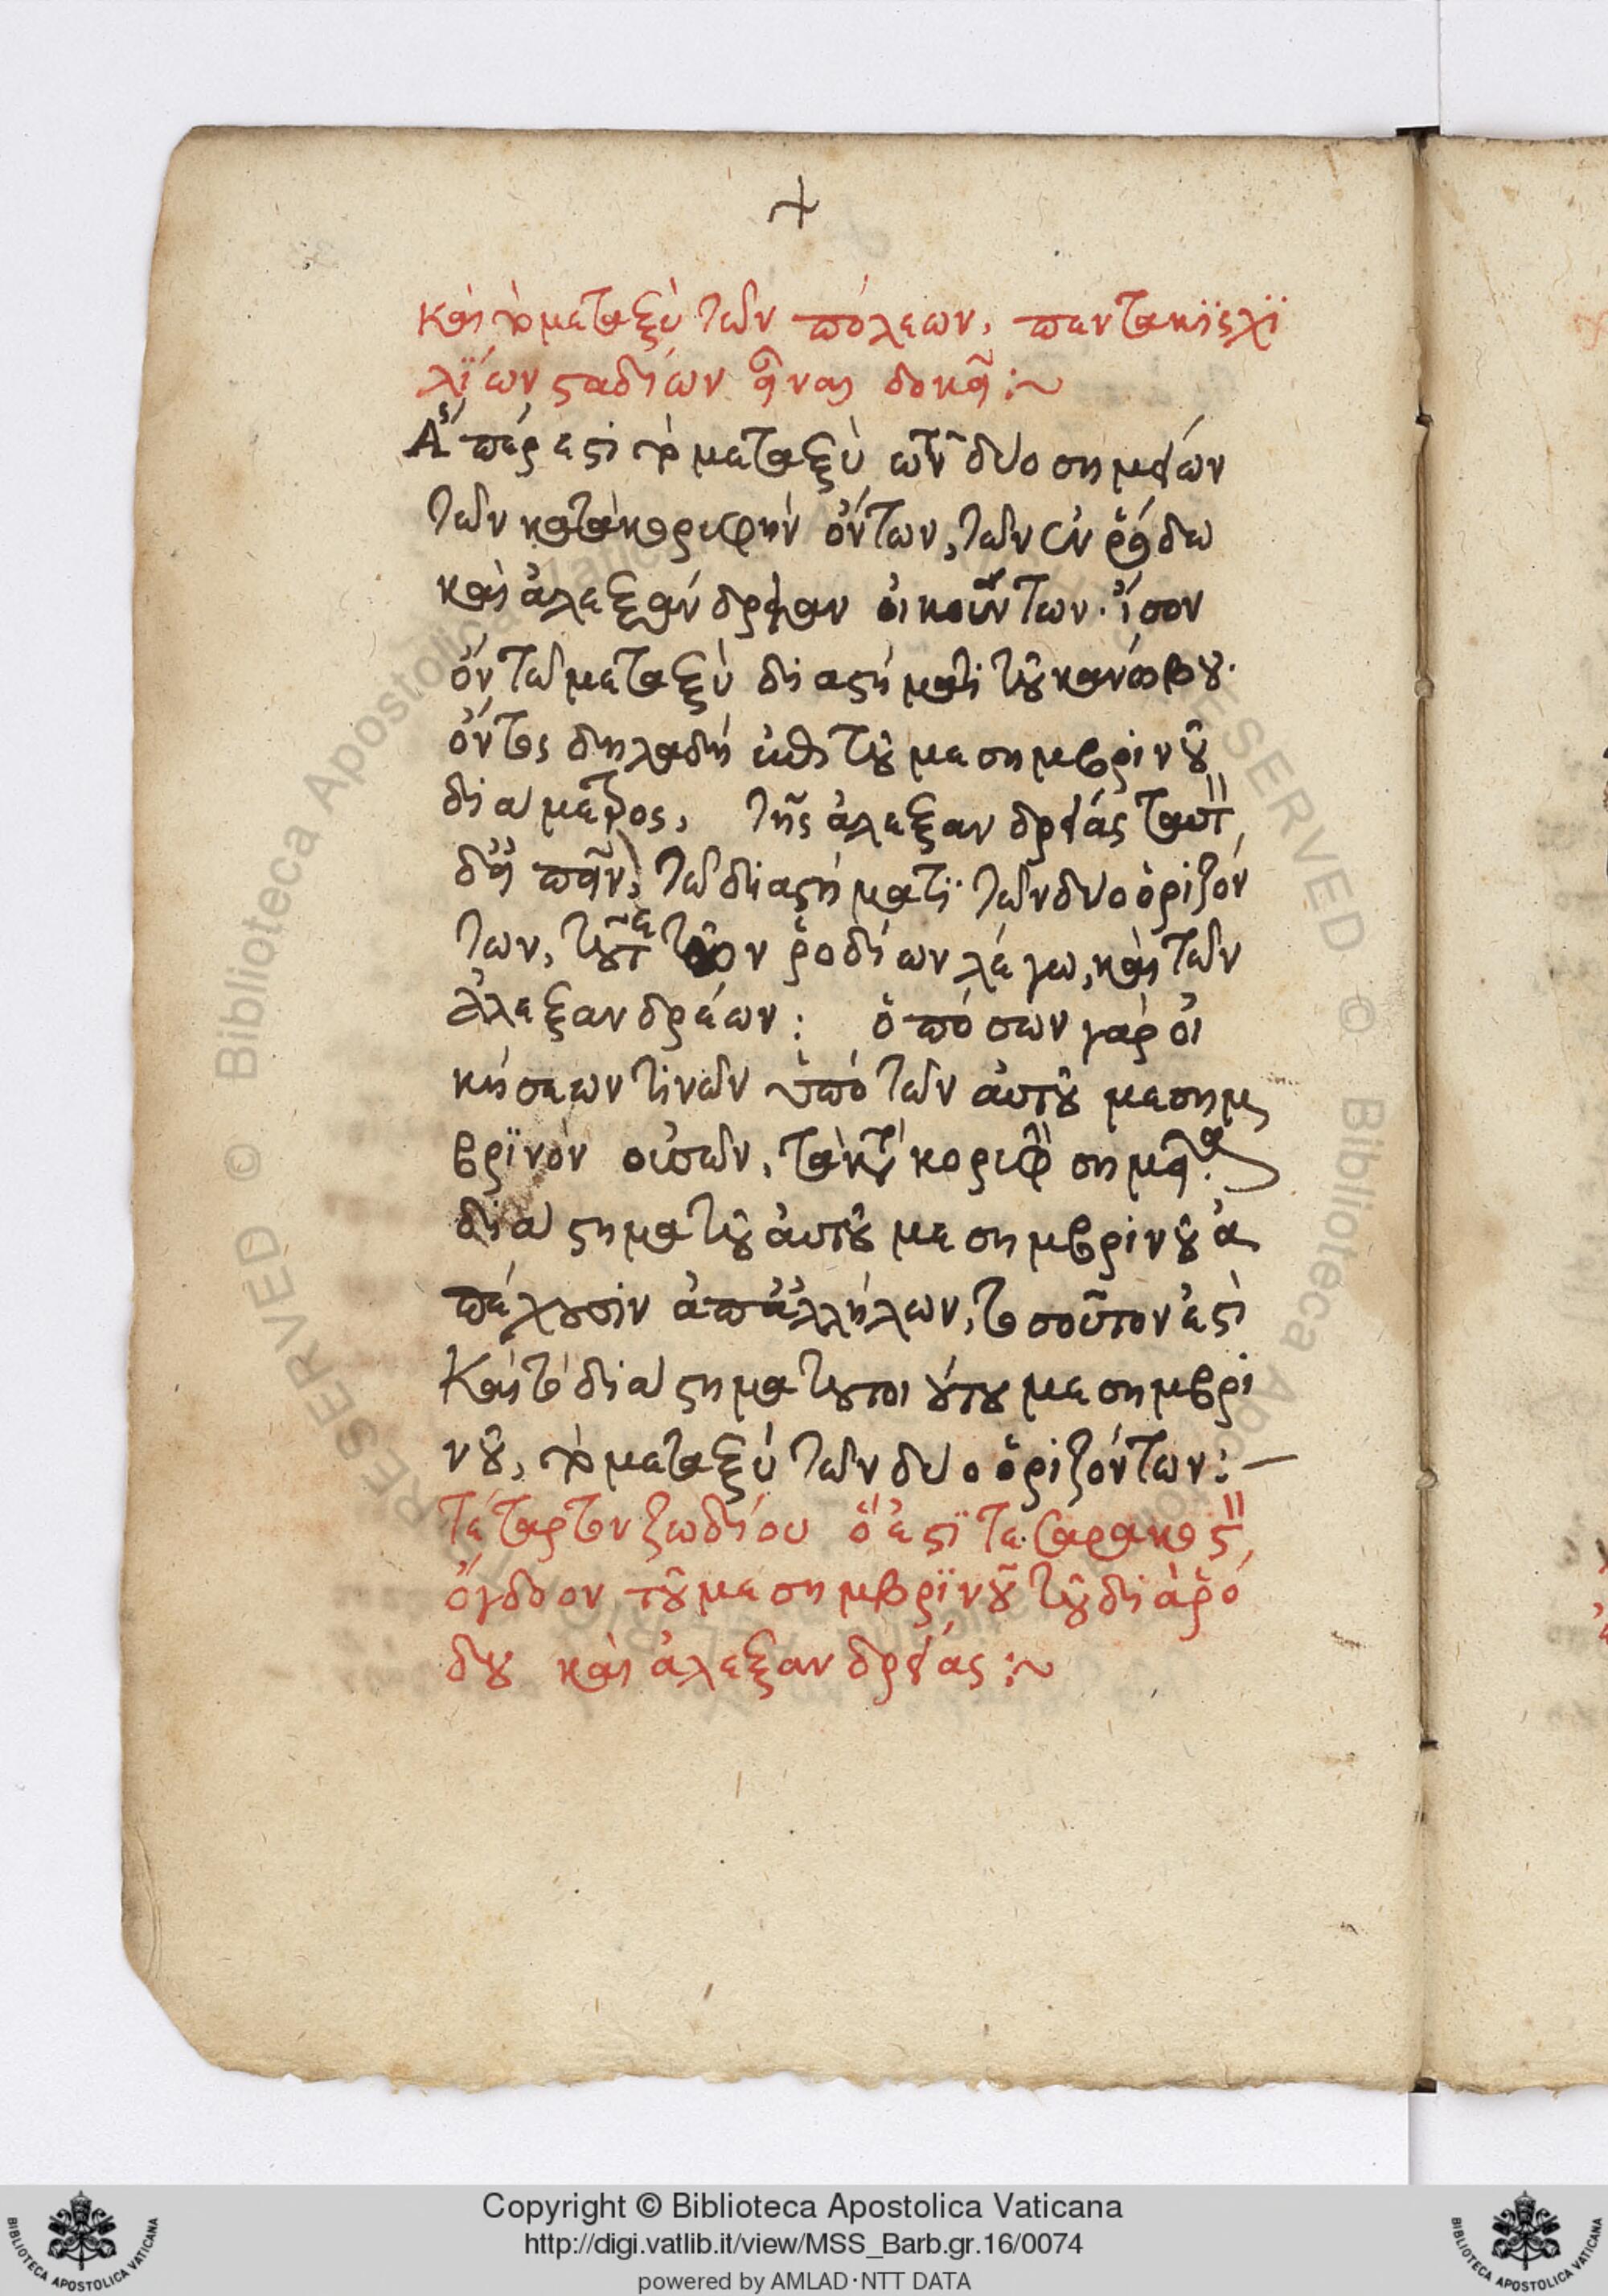 καὶ τὸ μεταξὺ τῶν πόλεων, πεντακϊςχϊ
λΐων ςαδίων εἶναι δοκεῖ:~
Ἅπέρ ἐςὶ τὸ μεταξὺ δυο σημείων
τῶν κατὰκορυφὴν ὄντων, τῶν ἐν ῥόδω
καὶ ἀλεξανδρείαν οἰκούντων. ἴσον
ὄν τῶ μεταξὺ διαςήματι τοῦ κανώβου.
ὄντος δηλαδὴ τοῦ μεσημβρινοῦ
διαμετρος, τῆς ἀλεξανδρείας
τῶ διαςήματϊ τῶν δυο ὁριζόν
των, ῥοδίων λέγω, καὶ τῶν
ἀλεξανδρέων: ὁπόσων γὰρ οἰ
κήσεων τινῶν ὑπὸ τῶν αὐτοῦ μεσημ
βρϊνὸν οὐσῶν,
διαςημα τοῦ αὐτοῦ μεσημβρινοῦ ἀ
πέχουσιν ἀπἀλλήλων, τοσοῦτον ἐςὶ
Καὶ τὸ διαςημα μεσημβρι
νοῦ, τὸ μεταξὺ τῶν δυο ὁριζόντων:—
τέταρτον ζωδίου ὅ ἐςϊ τεσαρακος
ὄγδοον τοῦ μεσημβρϊνοῦ τοῦ διὰ ῥό
δου καὶ ἀλεξανδρείας:~
Copyright © Biblioteca Apostolica Vaticana
http://digi.vatlib.it/view/MSS_Barb.gr.16/0074
powered by AMLAD·NTT DATA